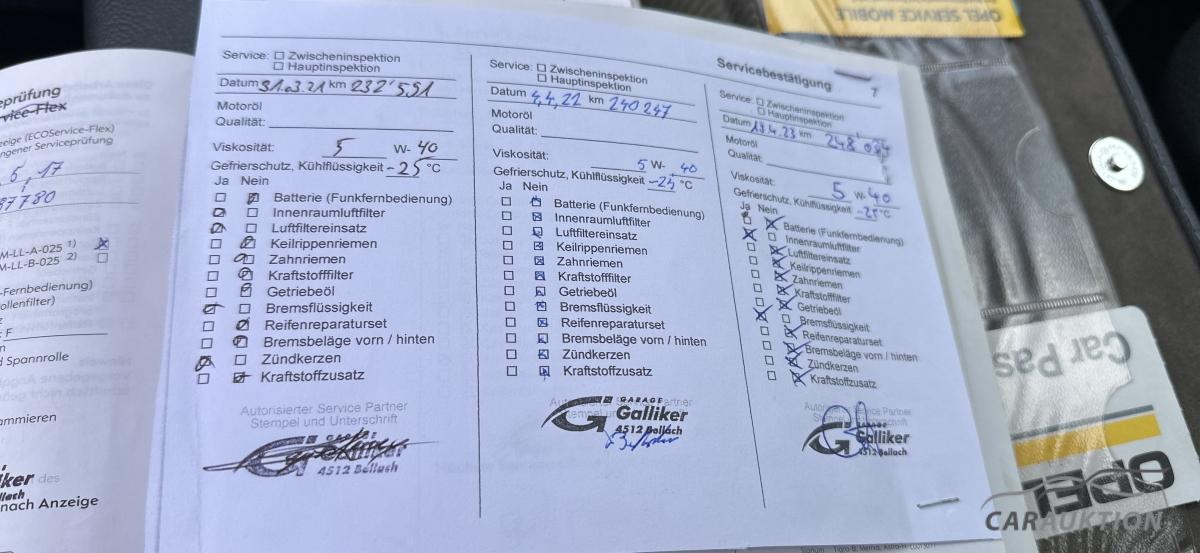 OPEL SERVICE MOBILE
eprüfung
vice-Flex
zeige (ECOService-Flex)
ngener Serviceprüfung
5, 17
37780
M-LL-A-025 1)
M-LL-B-025 2)
-Fernbedienung)
ollenfilter)
: F
n
d Spannrolle
ammieren
ker des
llach
nach Anzeige
Service: Zwischeninspektion
Hauptinspektion
Datum 31.03.21 km 232'591
Motoröl
Qualität:
Viskosität: 5 W- 40
Gefrierschutz, Kühlflüssigkeit -25 °C
Ja Nein
Batterie (Funkfernbedienung)
Innenraumluftfilter
Luftfiltereinsatz
Keilrippenriemen
Zahnriemen
Kraftstofffilter
Getriebeöl
Bremsflüssigkeit
Reifenreparaturset
Bremsbeläge vorn / hinten
Zündkerzen
Kraftstoffzusatz
Autorisierter Service Partner
Stempel und Unterschrift
4512 Bellach
Service: Zwischeninspektion
Hauptinspektion
Datum 4,4,22 km 240247
Motoröl
Qualität:
Viskosität: 5 W- 40
Gefrierschutz, Kühlflüssigkeit -25 °C
Ja Nein
Batterie (Funkfernbedienung)
Innenraumluftfilter
Luftfiltereinsatz
Keilrippenriemen
Zahnriemen
Kraftstofffilter
Getriebeöl
Bremsflüssigkeit
Reifenreparaturset
Bremsbeläge vorn / hinten
Zündkerzen
Kraftstoffzusatz
GARAGE
Galliker
4512 Bellach
Servicebestätigung
Service: Zwischeninspektion
Hauptinspektion
Datum 19.4.23 km 248'084
Motoröl
Qualität:
Viskosität: 5 W- 40
Gefrierschutz, Kühlflüssigkeit -25 °C
Ja Nein
Batterie (Funkfernbedienung)
Innenraumluftfilter
Luftfiltereinsatz
Keilrippenriemen
Zahnriemen
Kraftstofffilter
Getriebeöl
Bremsflüssigkeit
Reifenreparaturset
Bremsbeläge vorn / hinten
Zündkerzen
Kraftstoffzusatz
Service Partner
Unterschrift
Galliker
4512 Bellach
Car Pas
OPEL
CARAUKTION